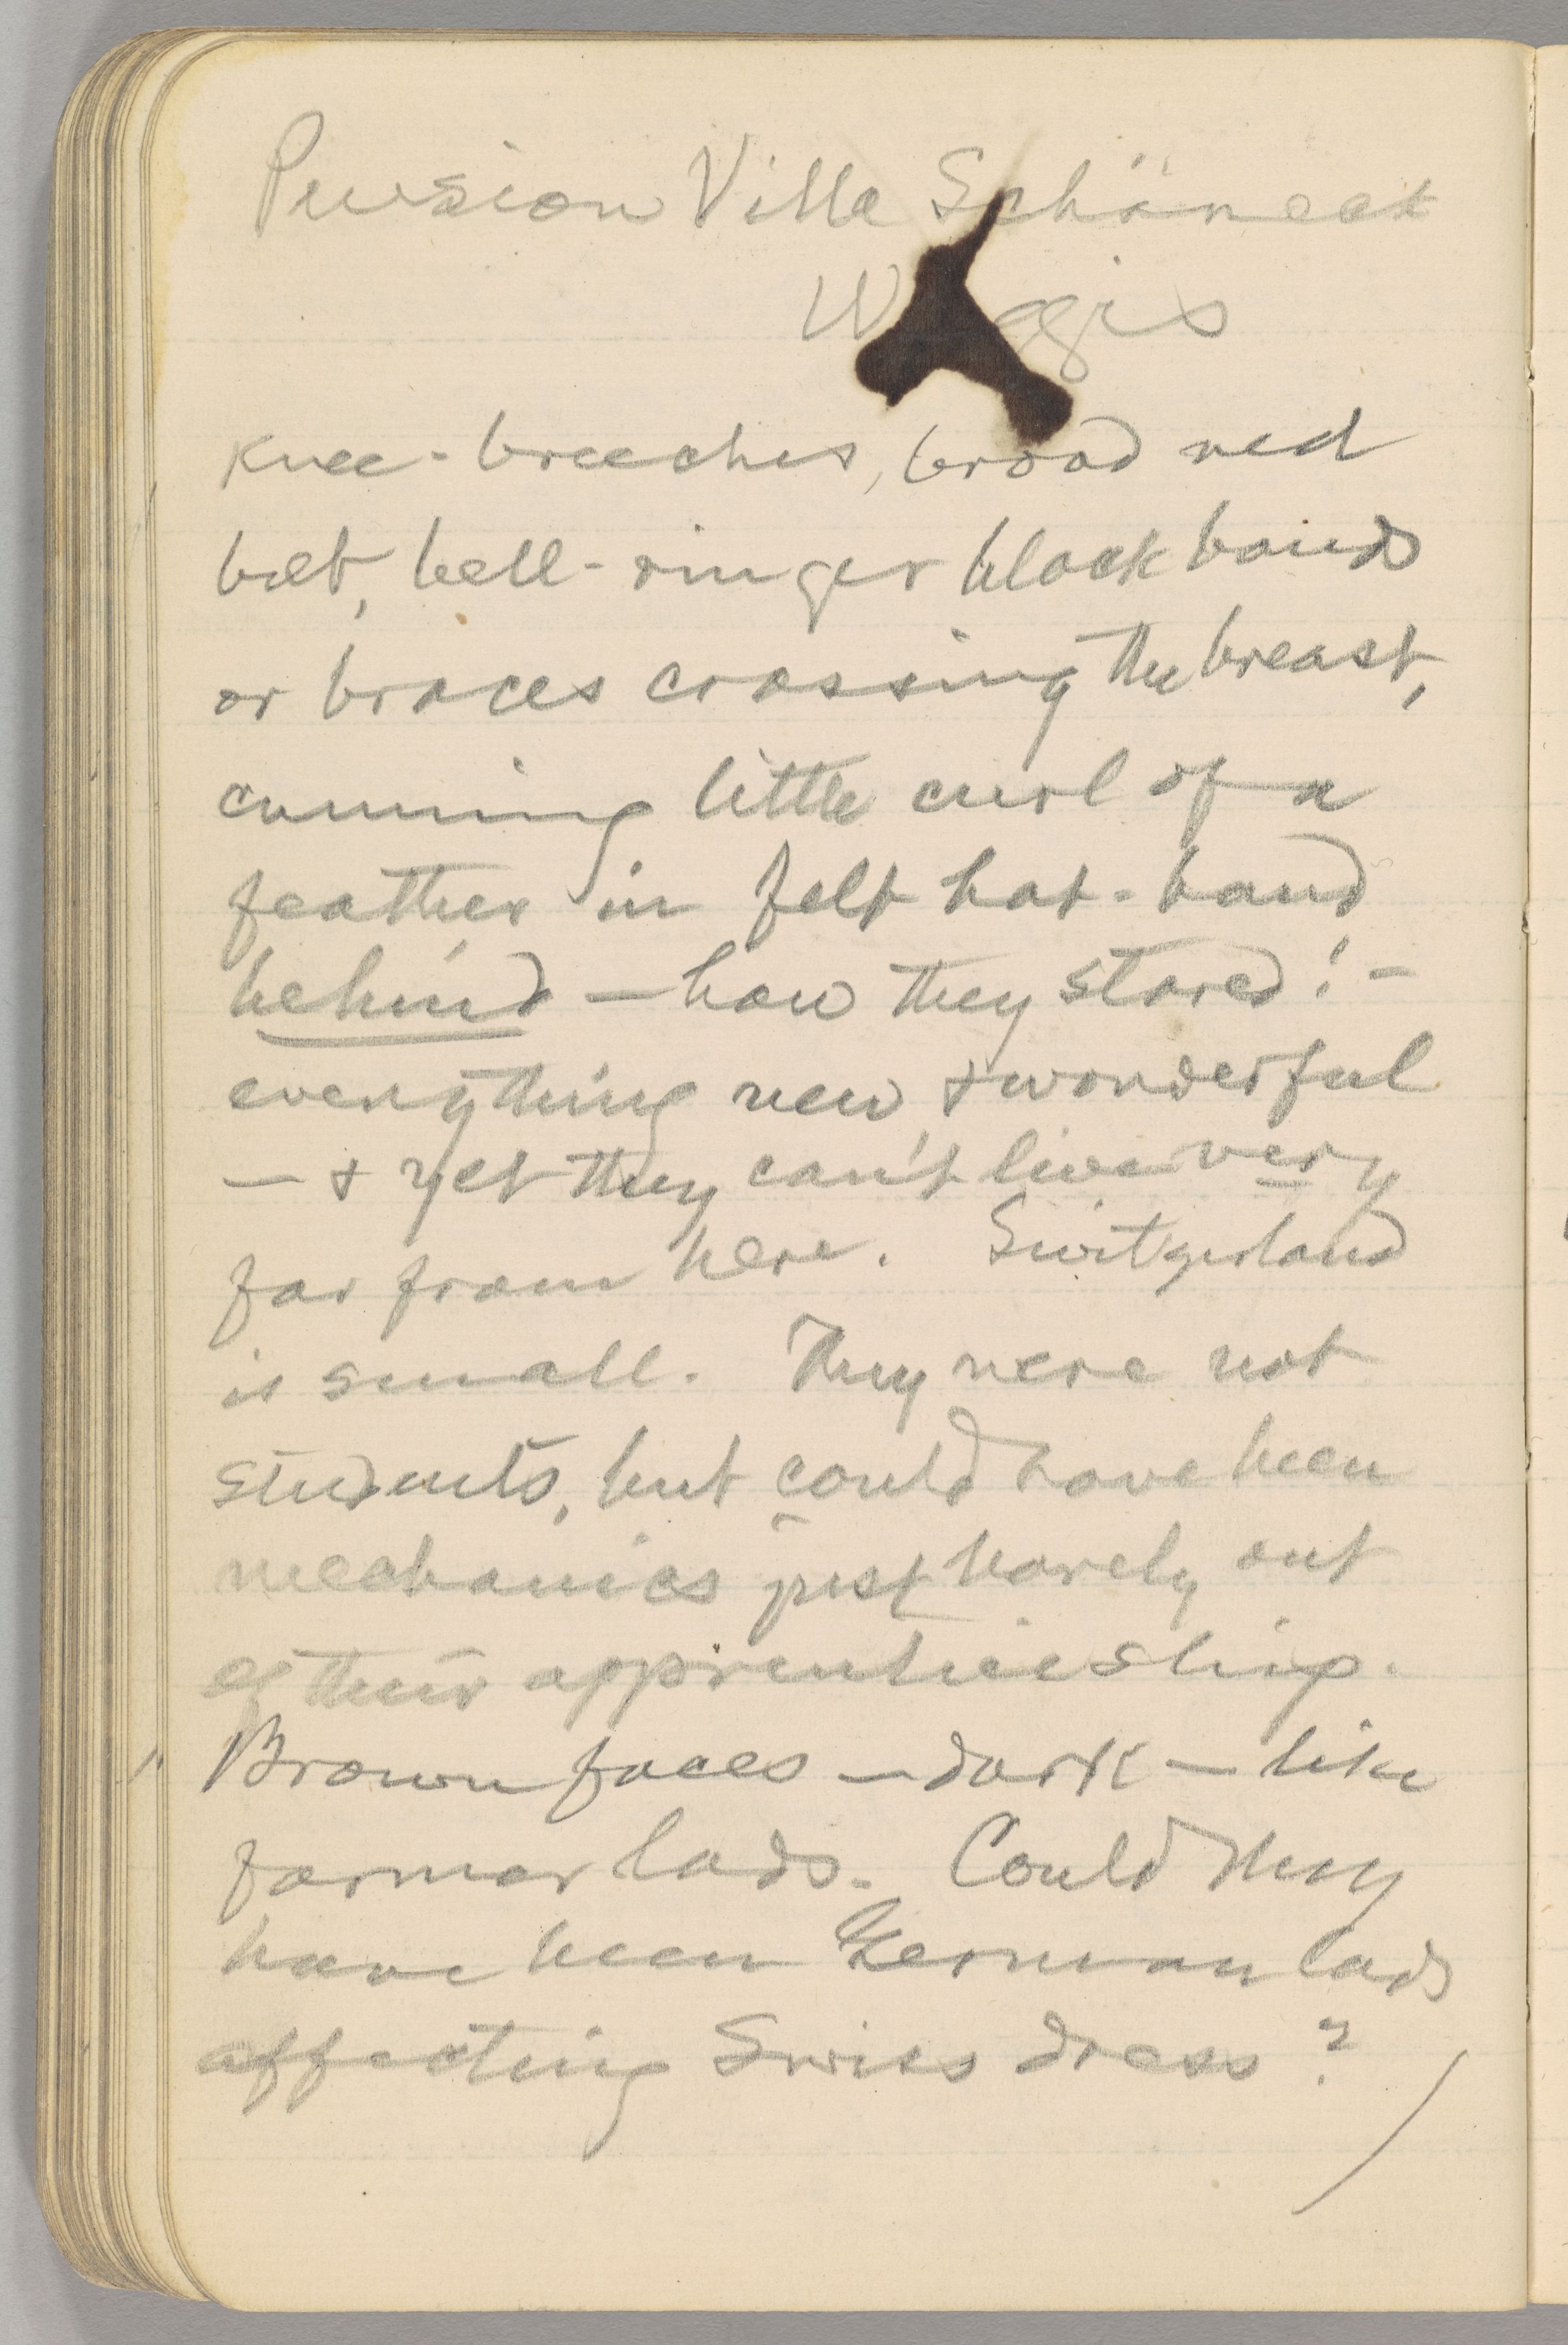 Pension Villa Schöneck
Weggis
knee-breeches, broad red
belt, bell-ringer black bands
or braces crossing the breast,
cunning little curl of a
feather in felt hat-band
behind — how they stared! —
everything new & wonderful
— & yet they can't live very
far from here. Switzerland
is small. They were not
students, but could have been
mechanics just barely out
of their apprenticeship.
Brown faces — dark — like
farmer lads. Could they
have been German lads
affecting Swiss dress?